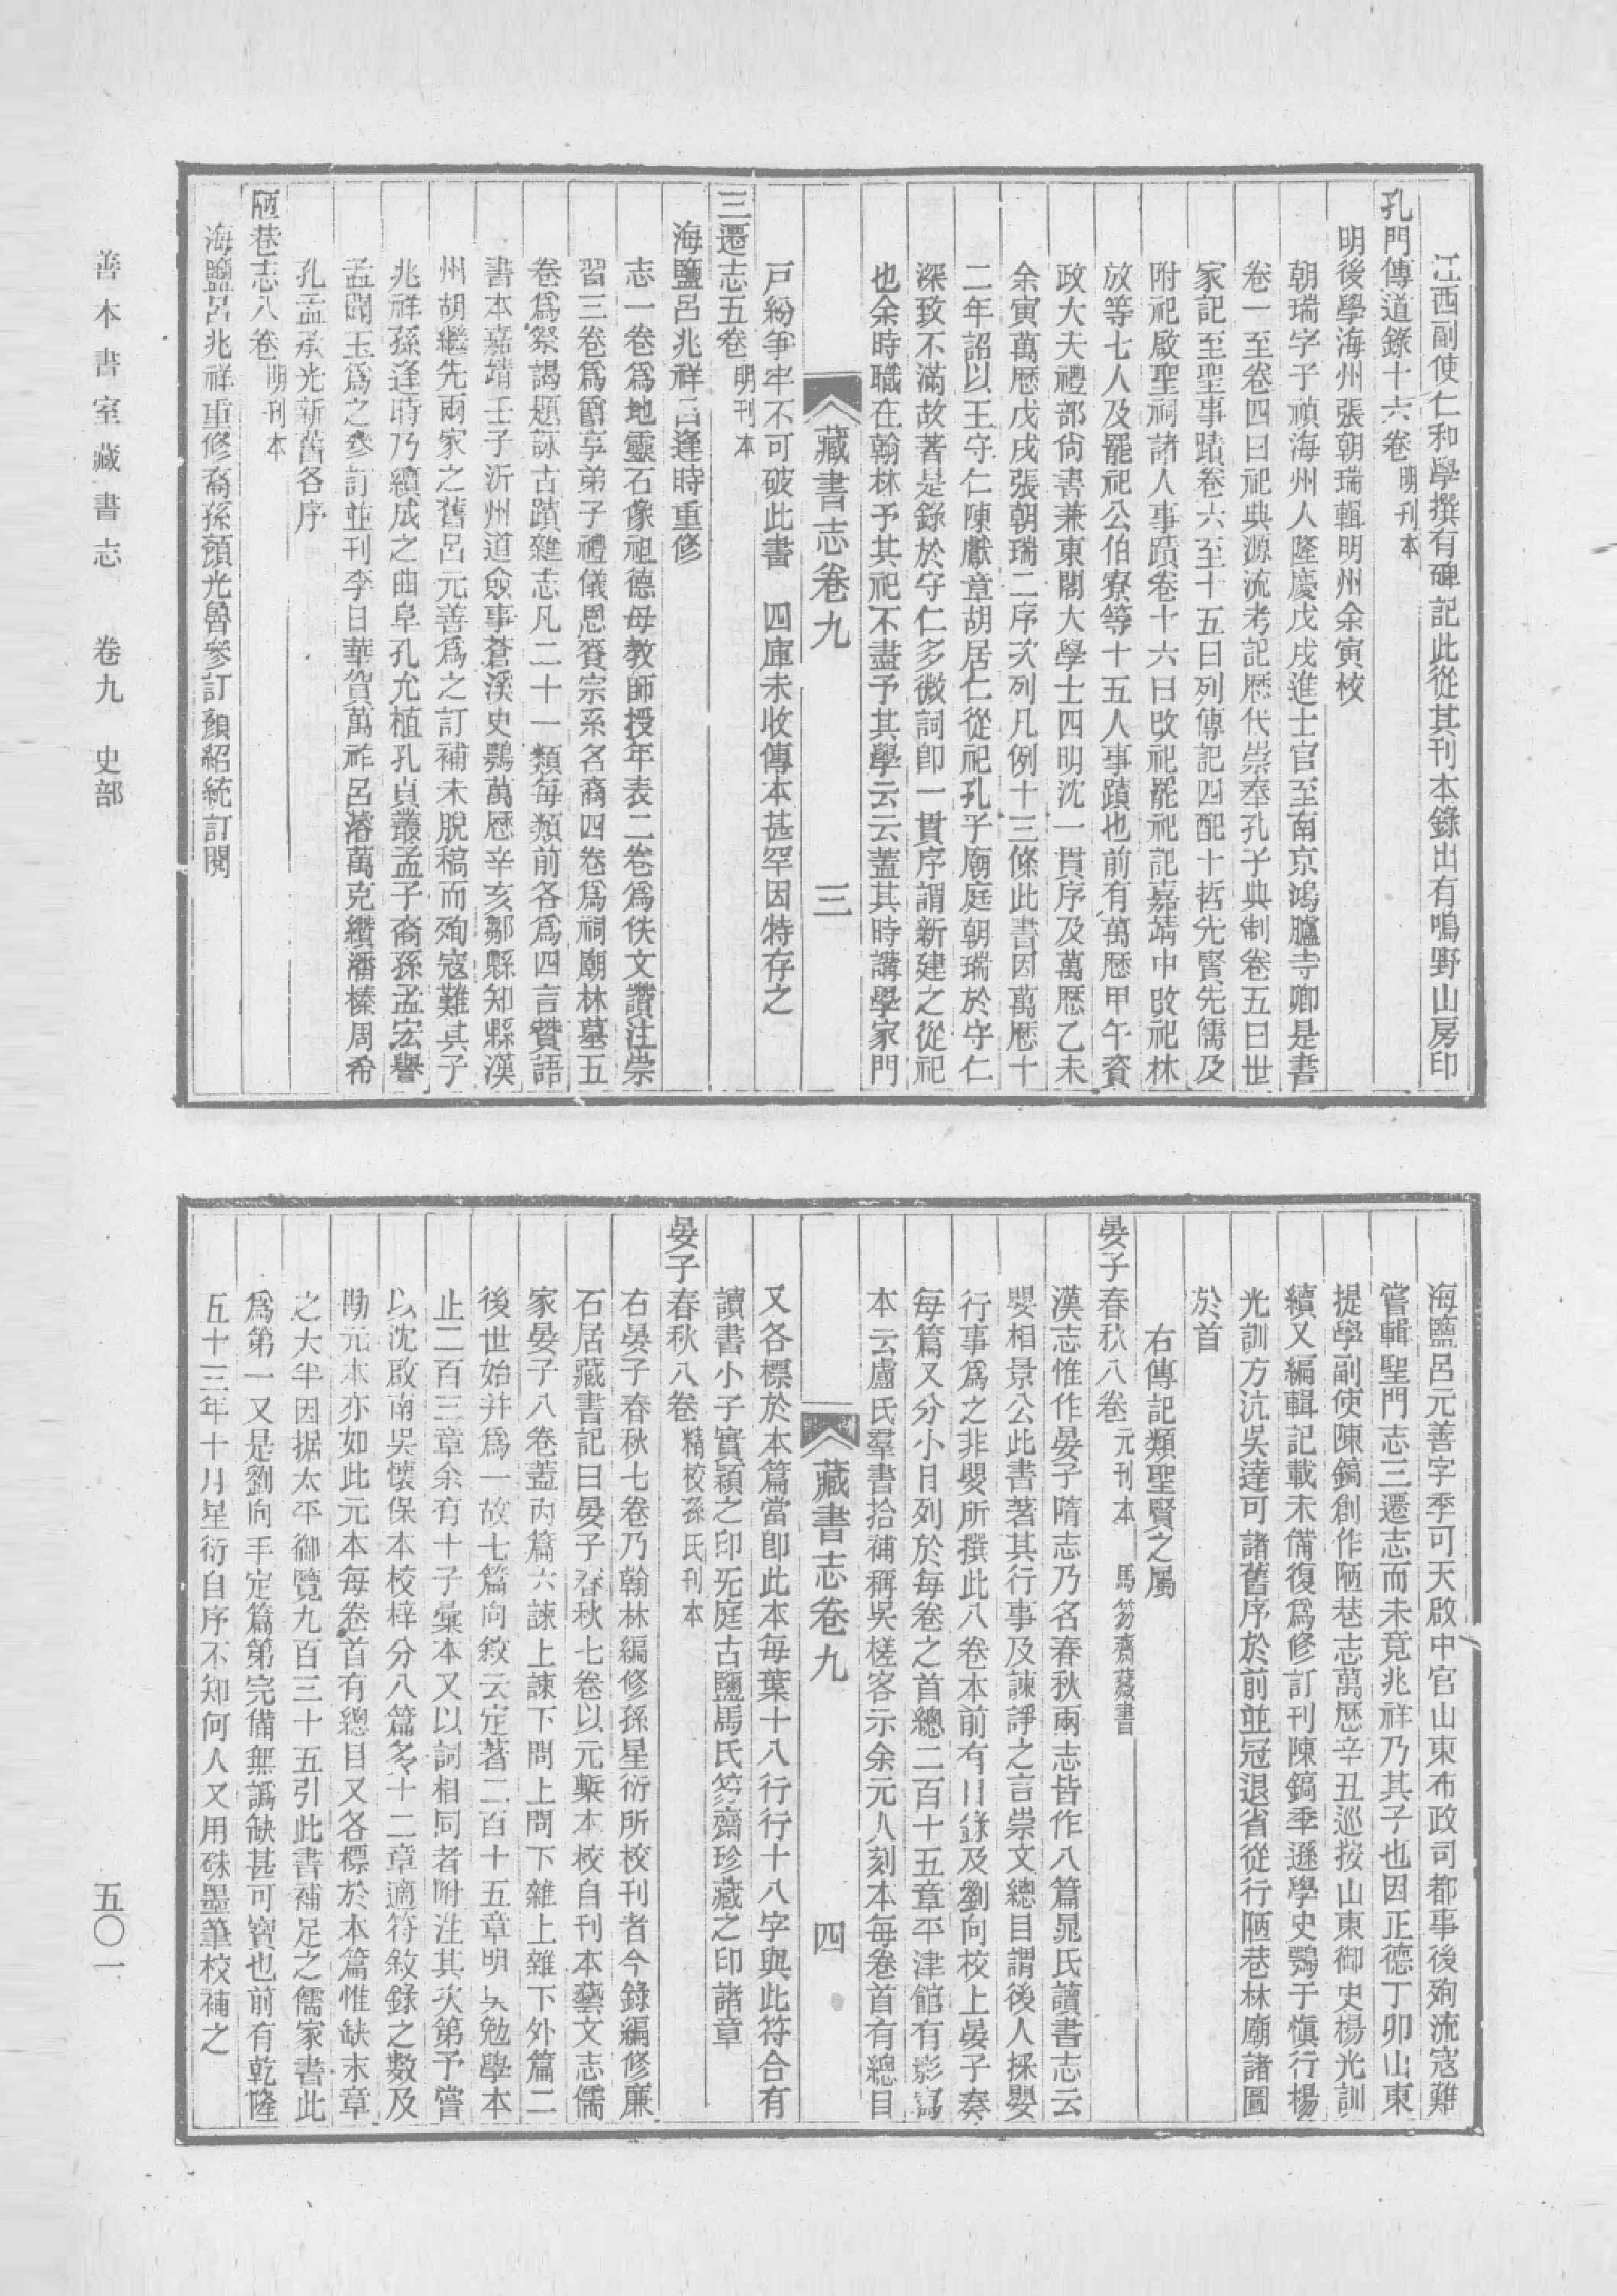 江西副使仁和學撰有碑記此從其刊本錄出有鳴野山房印
孔門傳道錄十六卷 明刊本
明後學海州張朝瑞輯明州余寅校
朝瑞字子禎海州人隆慶戊戌進士官至南京鴻臚寺卿是書
卷一至卷四曰祀典源流考記歷代崇奉孔子典制卷五曰世
家記至聖事蹟卷六至十五曰列傳記四配十哲先賢先儒及
附祀啟聖祠諸人事蹟卷十六曰改祀罷祀記嘉靖中改祀林
放等七人及罷祀公伯寮等十五人事蹟也前有萬歷甲午資
政大夫禮部尙書兼東閣大學士四明沈一貫序及萬歷乙未
余寅萬歷戊戌張朝瑞二序次列凡例十三條此書因萬歷十
二年詔以王守仁陳獻章胡居仁從祀孔子廟庭朝瑞於守仁
深致不滿故著是錄於守仁多微詞卽一貫序謂新建之從祀
也余時職在翰林予其祀不盡予其學云云蓋其時講學家門
藏書志卷九 三
戸紛爭牢不可破此書 四庫未收傳本甚罕因特存之
三遷志五卷 明刊本
海鹽呂兆祥呂逢時重修
志一卷爲地靈石像祖德母敎師授年表二卷爲佚文讚注崇
習三卷爲爵享弟子禮儀恩賚宗系名裔四卷爲祠廟林墓五
卷爲祭謁題詠古蹟雜志凡二十一類每類前各爲四言贊語
書本嘉靖壬子沂州道僉事蒼溪史鶚萬歷辛亥鄒縣知縣漢
州胡繼先兩家之舊呂元善爲之訂補未脫稿而殉寇難其子
兆祥孫逢時乃續成之曲阜孔允植孔貞叢孟子裔孫孟宏譽
孟聞玉爲之參訂並刊李日華賀萬祚呂濬萬克纘潘榛周希
孔孟承光新舊各序
陋巷志八卷 明刊本
海鹽呂兆祥重修裔孫顏光魯參訂顏紹統訂閱
海鹽呂元善字季可天啟中官山東布政司都事後殉流寇難
嘗輯聖門志三遷志而未竟兆祥乃其子也因正德丁卯山東
提學副使陳鎬創作陋巷志萬歷辛丑巡按山東御史楊光訓
續又編輯記載未備復爲修訂刊陳鎬李遜學史鶚于愼行楊
光訓方沆吳達可諸舊序於前並冠退省從行陋巷林廟諸圖
於首
右傳記類聖賢之屬
晏子春秋八卷 元刊本 馬笏齋藏書
漢志惟作晏子隋志乃名春秋兩志皆作八篇晁氏讀書志云
嬰相景公此書著其行事及諫諍之言崇文總目謂後人採嬰
行事爲之非嬰所撰此八卷本前有目錄及劉向校上晏子奏
每篇又分小目列於每卷之首總二百十五章平津館有影寫
本云盧氏羣書拾補稱吳槎客示余元人刻本每卷首有總目
藏書志卷九 四
又各標於本篇當卽此本每葉十八行行十八字與此符合有
讀書小子實穎之印旡庭古鹽馬氏笏齋珍藏之印諸章
晏子春秋八卷 精校孫氏刊本
右晏子春秋七卷乃翰林編修孫星衍所校刊者今錄編修廉
石居藏書記曰晏子春秋七卷以元槧本校自刊本藝文志儒
家晏子八卷蓋內篇六諫上諫下問上問下雜上雜下外篇二
後世始并爲一故七篇向敘云定著二百十五章明吳勉學本
止二百三章余有十子彙本又以詞相同者附注其次第予嘗
以沈啟南吳懷保本校梓分八篇多十二章適符敘錄之數及
勘元本亦如此元本每卷首有總目又各標於本篇惟缺末章
之大半因据太平御覽九百三十五引此書補足之儒家書此
爲第一又是劉向手定篇第完備無譌缺甚可寶也前有乾隆
五十三年十月星衍自序不知何人又用硃墨筆校補之
善本書室藏書志 卷九 史部
五〇一